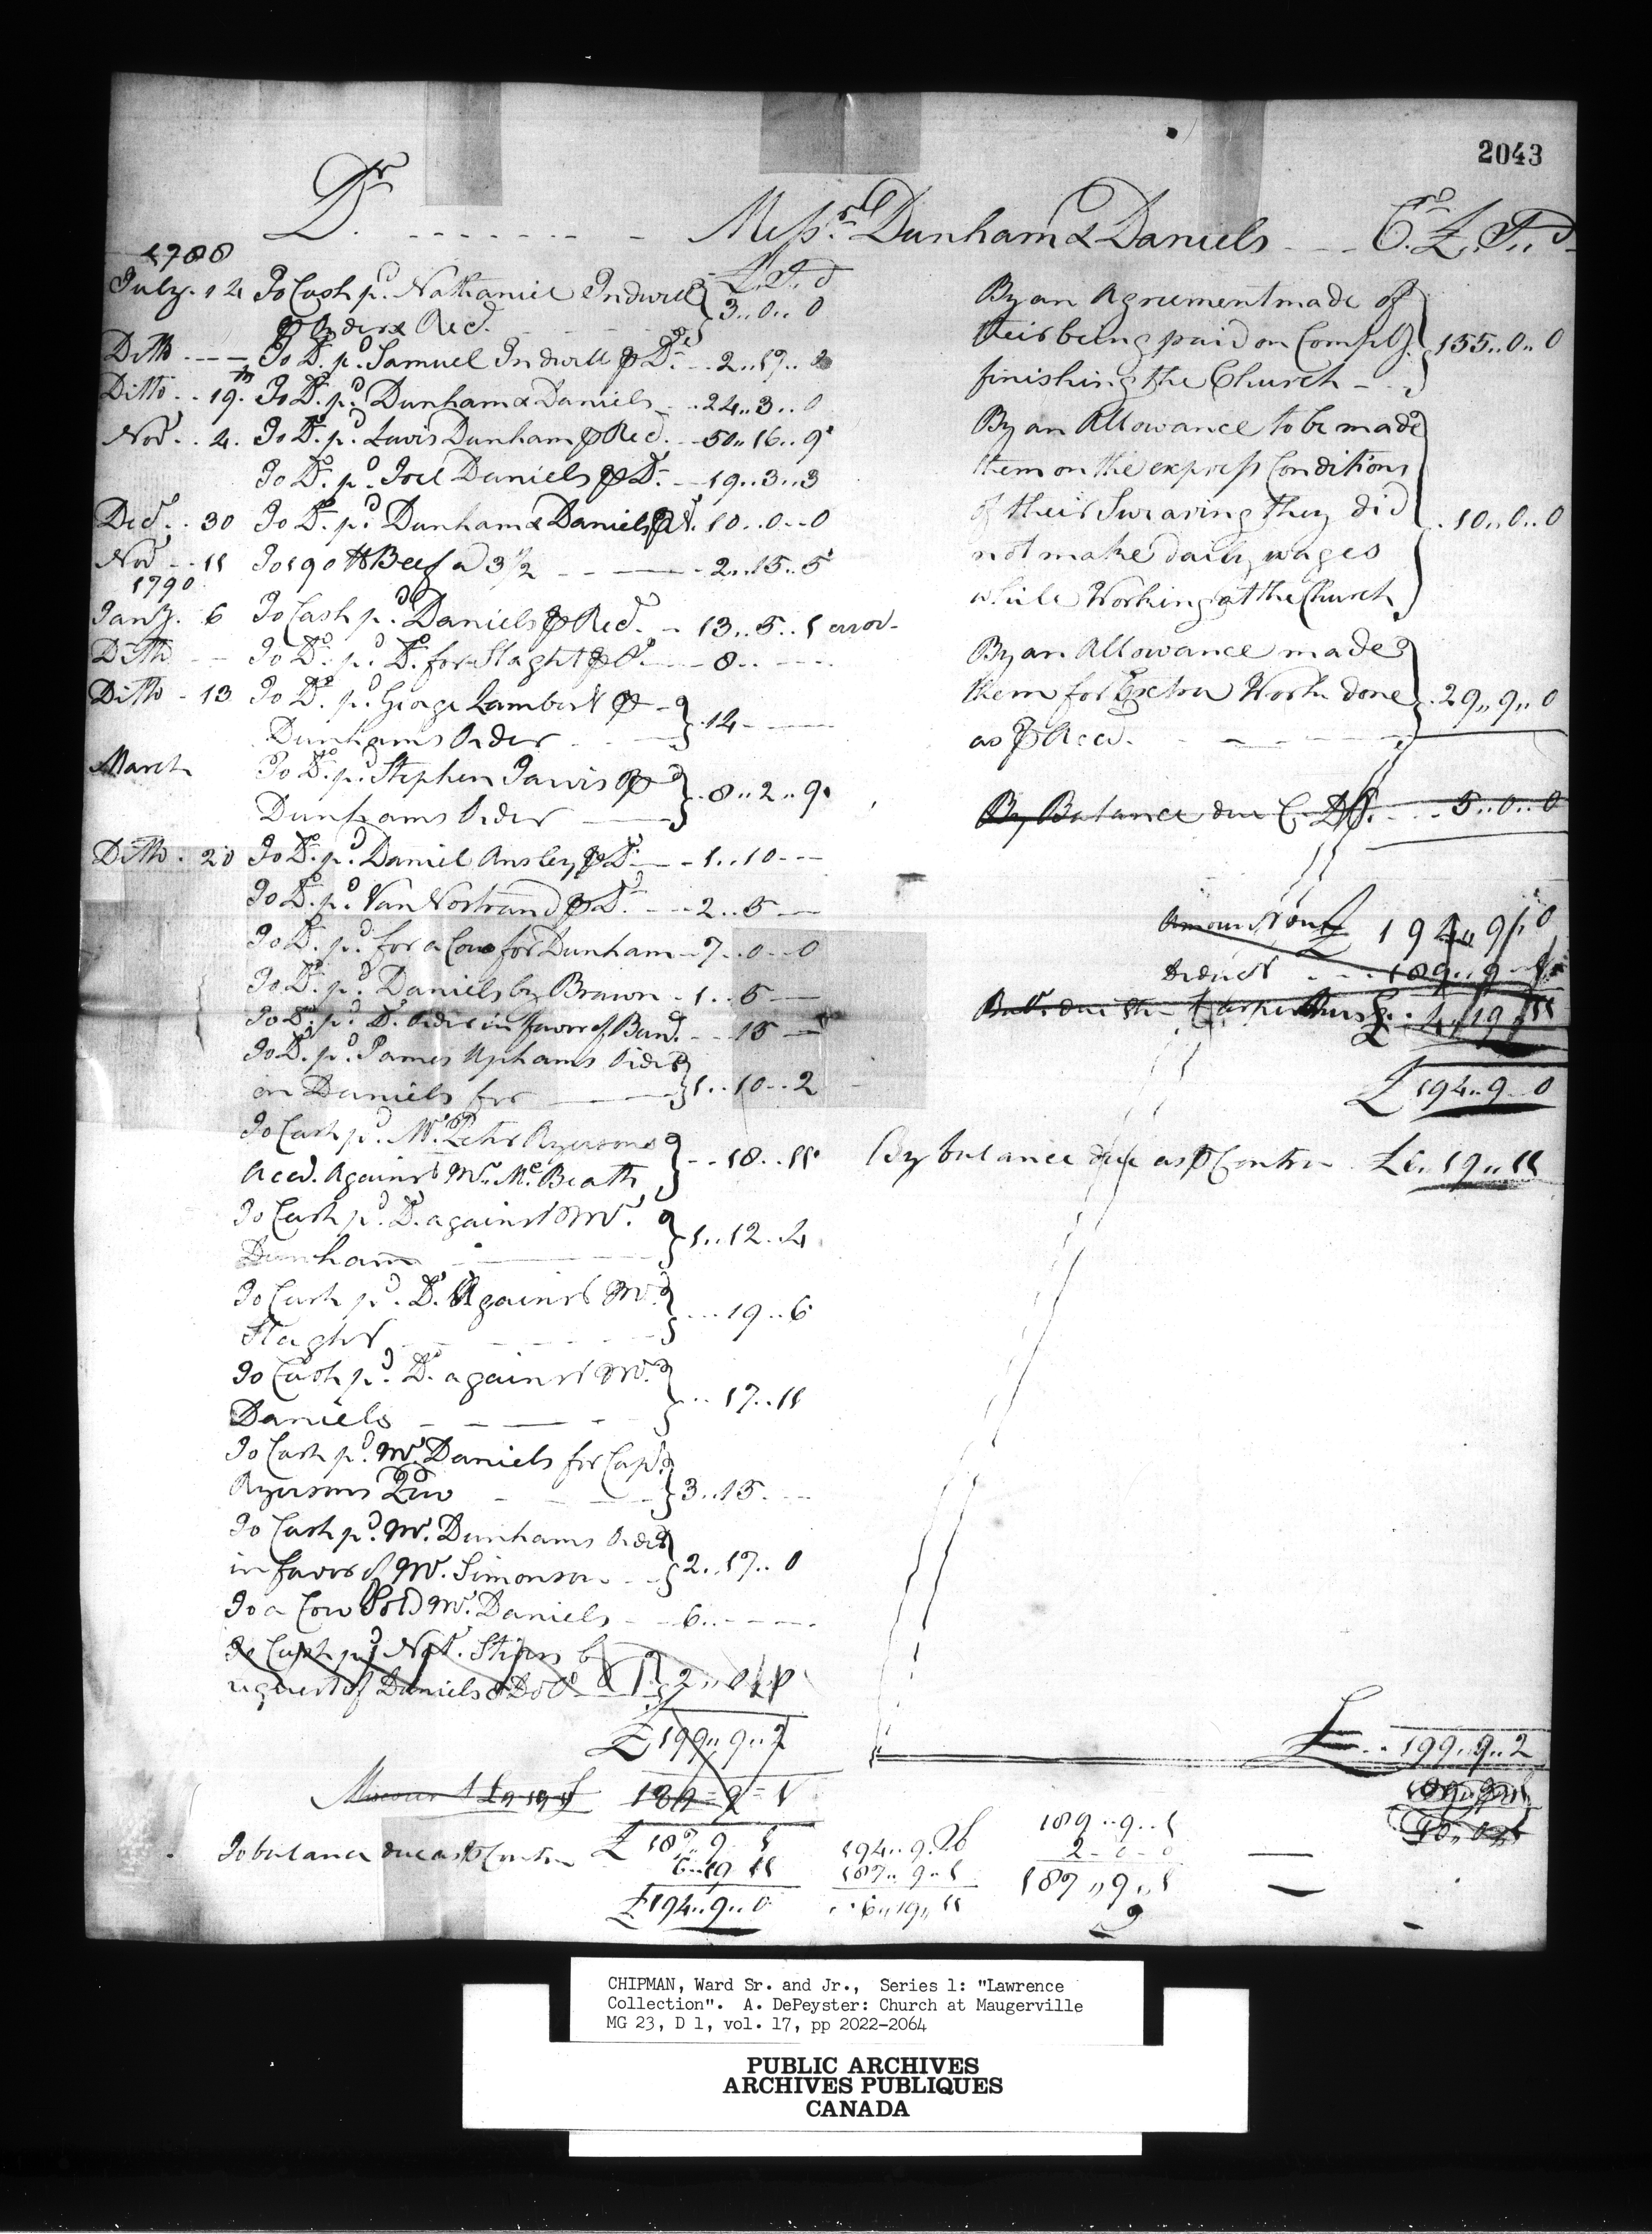 2043
Dr. - - - - - - - Messrs. Dunham & Daniels - - - Cr. £. S.. d
1788
£.. S.. d
July. 12 To Cash pd. Nathaniel Indwell } 3..0..0
⅌ Order & Recd.
Ditto - - - To Do. pd. Samuel Indwell ⅌ Do. - 2..17..2
Ditto.. 19th. To Do. pd. Dunham & Daniels - - 24..3..0
Novr.. 4. To Do. pd. Lewis Dunham ⅌ Recd. - 50..16..9
To Do. pd. Joel Daniels ⅌ Do. - - 19..3..3
Decr.. 30 To Do. pd. Dunham & Daniels ⅌ Do. 10..0..0
Novr - - 11 To 190 lb Beef a 3½ - - - - 2..15..5
1790
Jany. 6 To Cash pd. Daniels ⅌ Recd. - 13..5..1 error-
Ditto - - To Do. pd. Do. for Slaght ⅌ Do. - - 8.. - - -
Ditto - 13 To Do. pd. George Lambert ⅌ - } 14 - - - -
Dunhams Order
March To Do. pd. Stephen Jarvis ⅌ } 8..2..9
Dunhams Order
Ditto. 20 To Do. pd. Daniel Ansley ⅌ Do. - - 1..10 - -
To Do. pd. Van Nostrand ⅌ Do. - - 2..5 -
To Do. pd. for a Cow for Dunham - 7..0..0
To Do. pd. Daniels by Brawn - 1..5 -
To Do. pd. Do. Order in favor of - - 15 -
To Do. pd. James Uphams Order }
on Daniels for - - - } 1..10..2
To Cash pd. Mr. Peter Ryersons } - - 18..11
Acct. Against Mr. McBeath
To Cash pd. Do. against Mr. } 1..12..4
Dunham
To Cash pd. Do. Against Mr. } - - 19..6
Slaght
To Cash pd. Do. against Mr. } - - 17..11
Daniels
To Cash pd. Mr. Daniels for Capt. } 3..15. - -
Ryersons Pew
To Cash pd. Mr. Dunhams Order }
in favor of Mr. Simonson - - } 2..17..0
To a Cow Sold Mr. Daniels - - 6.. - - -
To Cash pd. Nat. by
request of Daniels & Do. 2..0..0
£199..9..2
189=9=1
£187..9..1
To balance due as ⅌ Contra 6..19..11
£194..9..0
By an Agreement made of }
their being paid on Comply. } 155..0..0
finishing the Church - - }
By an Allowance to be made }
them on the express Conditions
of their Swearing they did } 10..0..0
not make daily wages
while Working at the Church }
By an Allowance made }
them for Extra Work done } 29..9..0
as ⅌ Acct.
By Balance due - - - 5..0..0
Amount £ 194..9..0
Deduct - - - 189..9..1
4..19..11
£194..9..0
By balance due as ⅌ Contra £6..19..11
£ - - 199..9..2
189..9..1
194..9..0
187..9..1
6..19..11
189..9..1
2..0..0
187..9..1
CHIPMAN, Ward Sr. and Jr., Series 1: "Lawrence
Collection". A. DePeyster: Church at Maugerville
MG 23, D 1, vol. 17, pp 2022-2064
PUBLIC ARCHIVES
ARCHIVES PUBLIQUES
CANADA